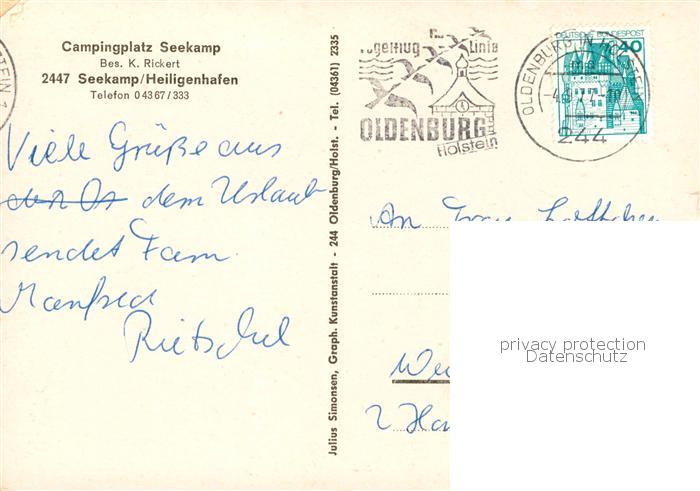 Campingplatz Seekamp
Bes. K. Rickert
2447 Seekamp/Heiligenhafen
Telefon 04367/333
Viele Grüße aus
dem Urlaub
sendet Fam.
Manfred
Rietschel
Julius Simonsen, Graph. Kunstanstalt - 244 Oldenburg/Holst. - Tel. (04361) 2335
Vogelflug Linie
OLDENBURG
Holstein
DEUTSCHE BUNDESPOST
40
OLDENBURG IN HOLSTEIN
244
An
2 Ha
privacy protection
Datenschutz